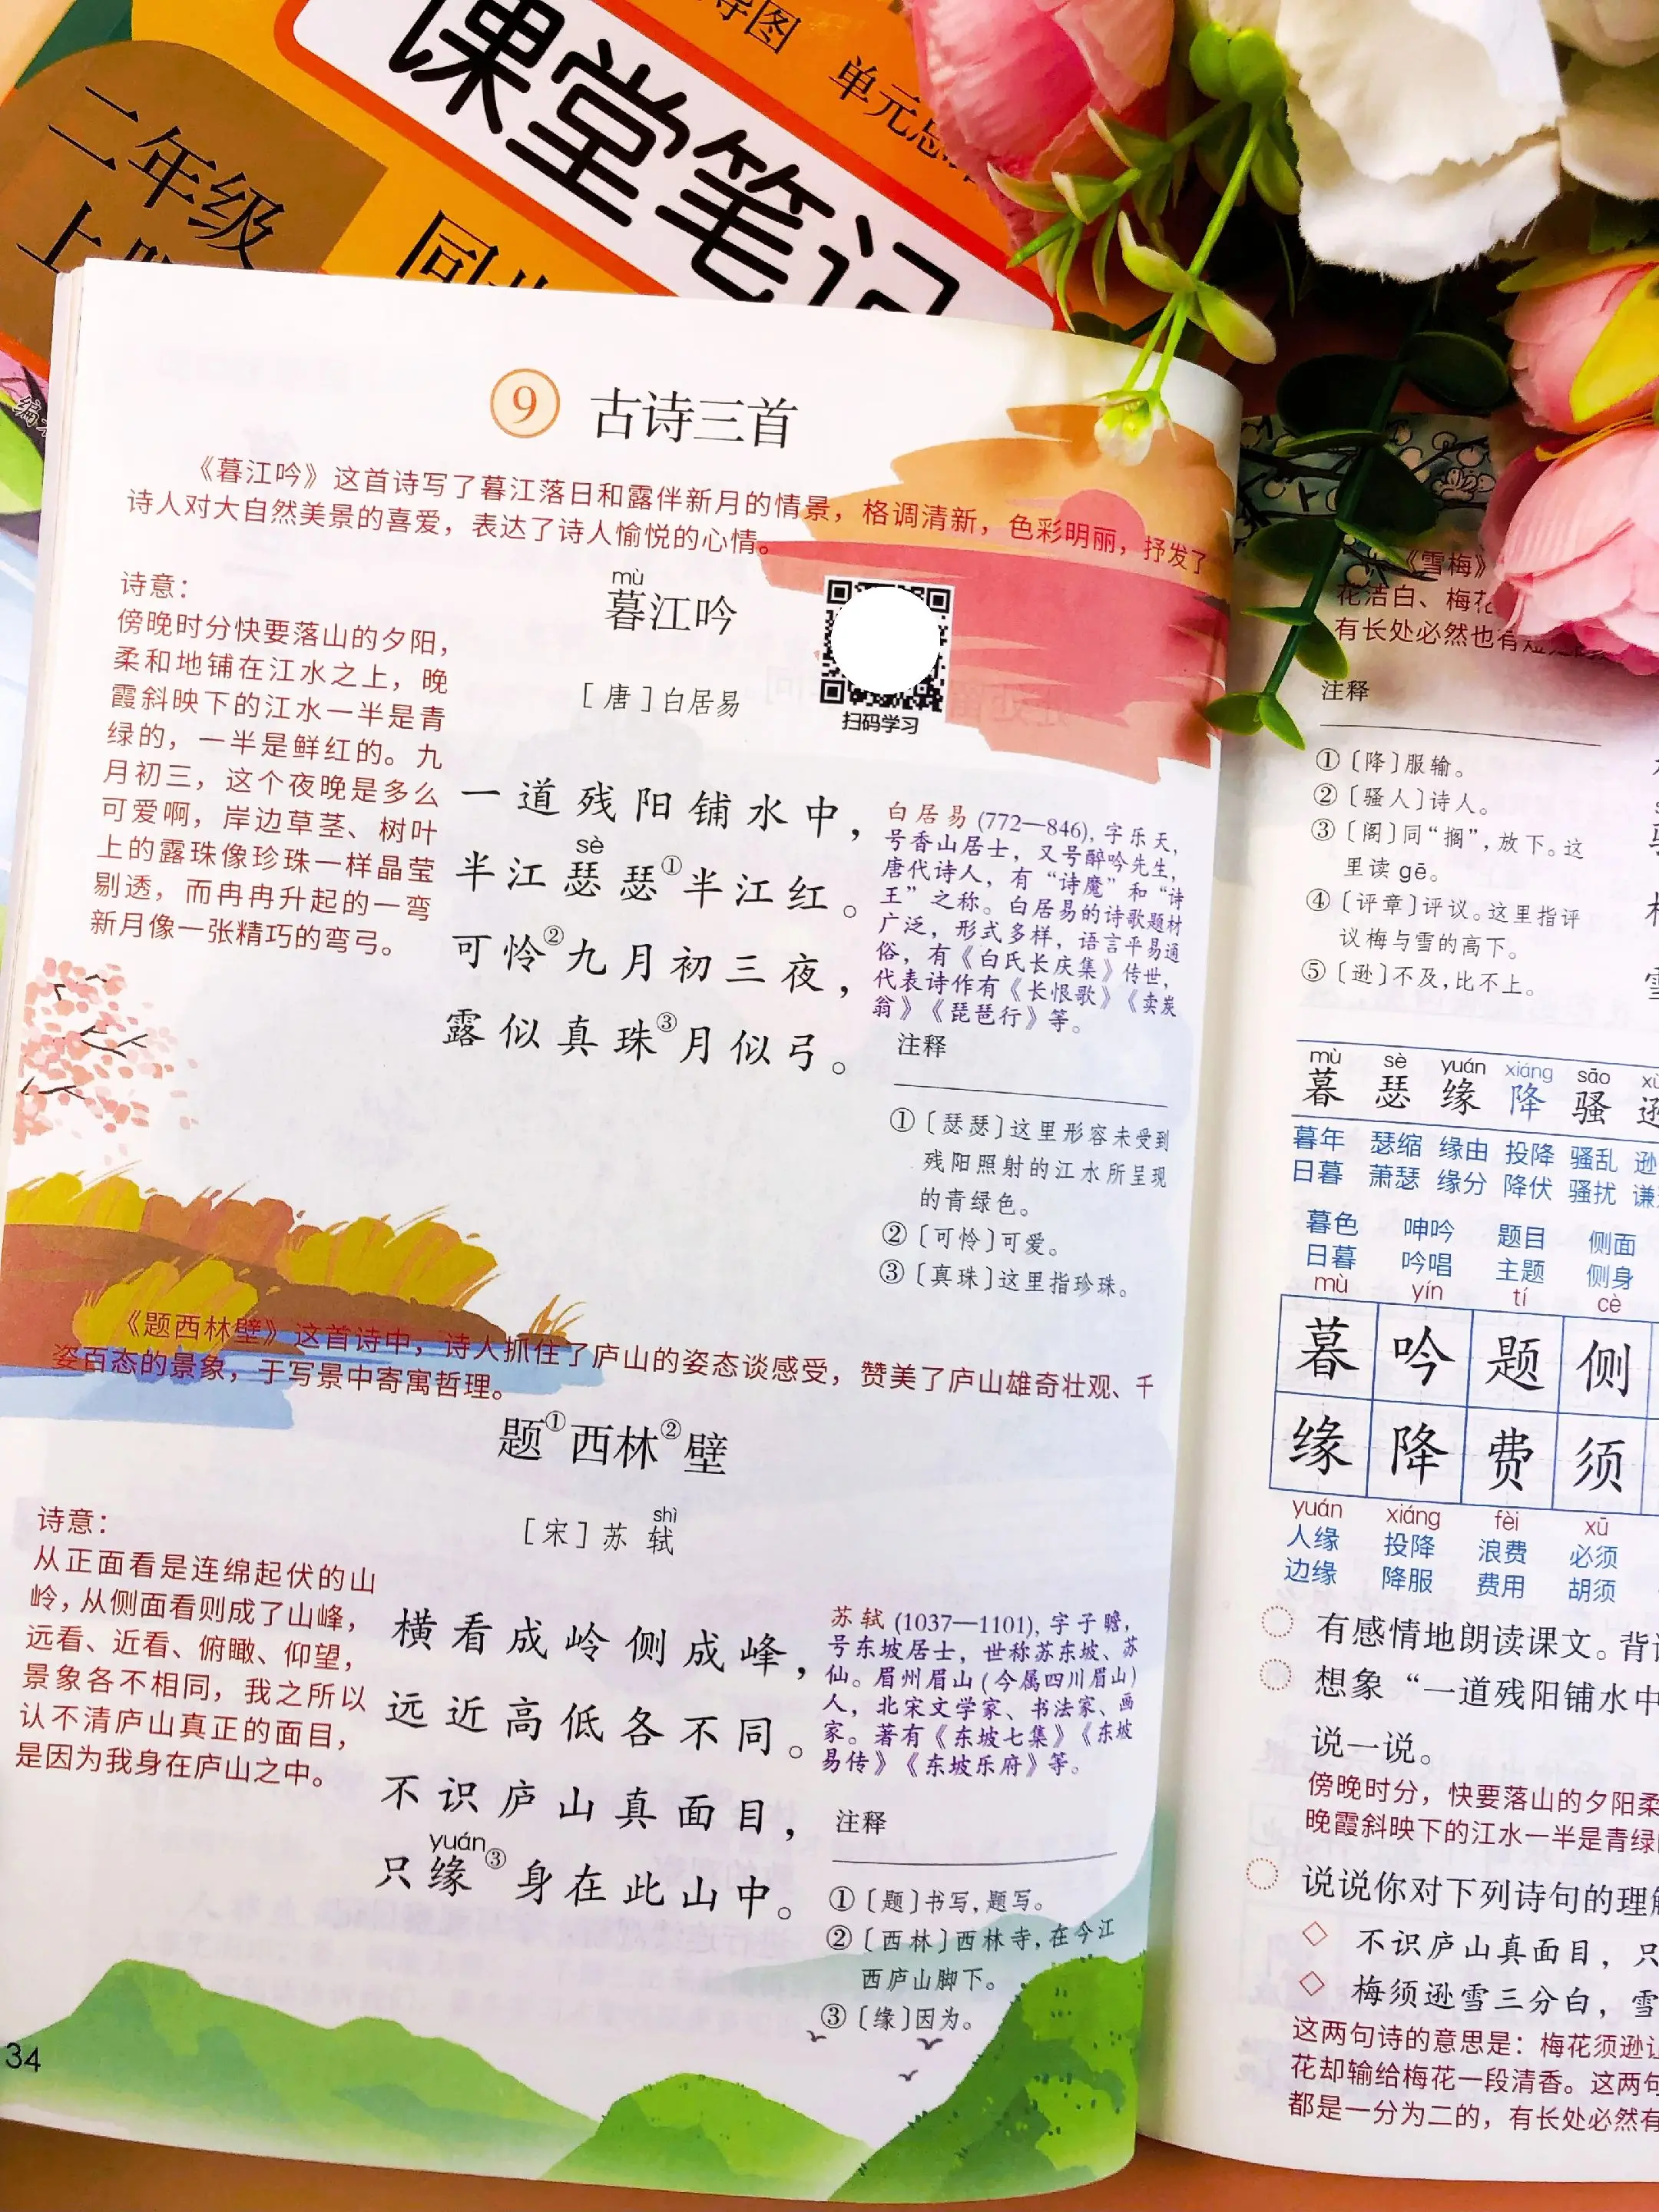 导图 单元总
课堂笔记
二年级
上
同步
9 古诗三首
《暮江吟》这首诗写了暮江落日和露伴新月的情景，格调清新，色彩明丽，抒发了
诗人对大自然美景的喜爱，表达了诗人愉悦的心情。
诗意：
傍晚时分快要落山的夕阳，
柔和地铺在江水之上，晚
霞斜映下的江水一半是青
绿的，一半是鲜红的。九
月初三，这个夜晚是多么
可爱啊，岸边草茎、树叶
上的露珠像珍珠一样晶莹
剔透，而冉冉升起的一弯
新月像一张精巧的弯弓。
mù
暮江吟
［唐］白居易
扫码学习
一道残阳铺水中，
sè
半江瑟瑟①半江红。
可怜②九月初三夜，
露似真珠③月似弓。
白居易 (772—846)，字乐天，
号香山居士，又号醉吟先生，
唐代诗人，有“诗魔”和“诗
王”之称。白居易的诗歌题材
广泛，形式多样，语言平易通
俗，有《白氏长庆集》传世，
代表诗作有《长恨歌》《卖炭
翁》《琵琶行》等。
注释
①〔瑟瑟〕这里形容未受到
残阳照射的江水所呈现
的青绿色。
②〔可怜〕可爱。
③〔真珠〕这里指珍珠。
《题西林壁》这首诗中，诗人抓住了庐山的姿态谈感受，赞美了庐山雄奇壮观、千
姿百态的景象，于写景中寄寓哲理。
题①西林②壁
shì
［宋］苏 轼
诗意：
从正面看是连绵起伏的山
岭，从侧面看则成了山峰，
远看、近看、俯瞰、仰望，
景象各不相同，我之所以
认不清庐山真正的面目，
是因为我身在庐山之中。
横看成岭侧成峰，
远近高低各不同。
不识庐山真面目，
yuán
只缘③身在此山中。
苏轼 (1037—1101)，字子瞻，
号东坡居士，世称苏东坡、苏
仙。眉州眉山 (今属四川眉山)
人，北宋文学家、书法家、画
家。著有《东坡七集》《东坡
易传》《东坡乐府》等。
注释
①〔题〕书写，题写。
②〔西林〕西林寺，在今江
西庐山脚下。
③〔缘〕因为。
34
《雪梅》
花洁白、梅花
有长处必然也有
注释
①〔降〕服输。
②〔骚人〕诗人。
③〔阁〕同“搁”，放下。这
里读 gē。
④〔评章〕评议。这里指评
议梅与雪的高下。
⑤〔逊〕不及，比不上。
mù sè yuán xiáng sāo
暮 瑟 缘 降 骚 逊
暮年 瑟缩 缘由 投降 骚乱 逊
日暮 萧瑟 缘分 降伏 骚扰 谦
暮色 呻吟 题目 侧面
日暮 吟唱 主题 侧身
mù yín tí cè
暮 吟 题 侧
缘 降 费 须
yuán xiáng fèi xū
人缘 投降 浪费 必须
边缘 降服 费用 胡须
有感情地朗读课文。背
想象“一道残阳铺水中
说一说。
傍晚时分，快要落山的夕阳柔
晚霞斜映下的江水一半是青绿
说说你对下列诗句的理解
不识庐山真面目，只
梅须逊雪三分白，雪
这两句诗的意思是：梅花须逊让
花却输给梅花一段清香。这两句
都是一分为二的，有长处必然有